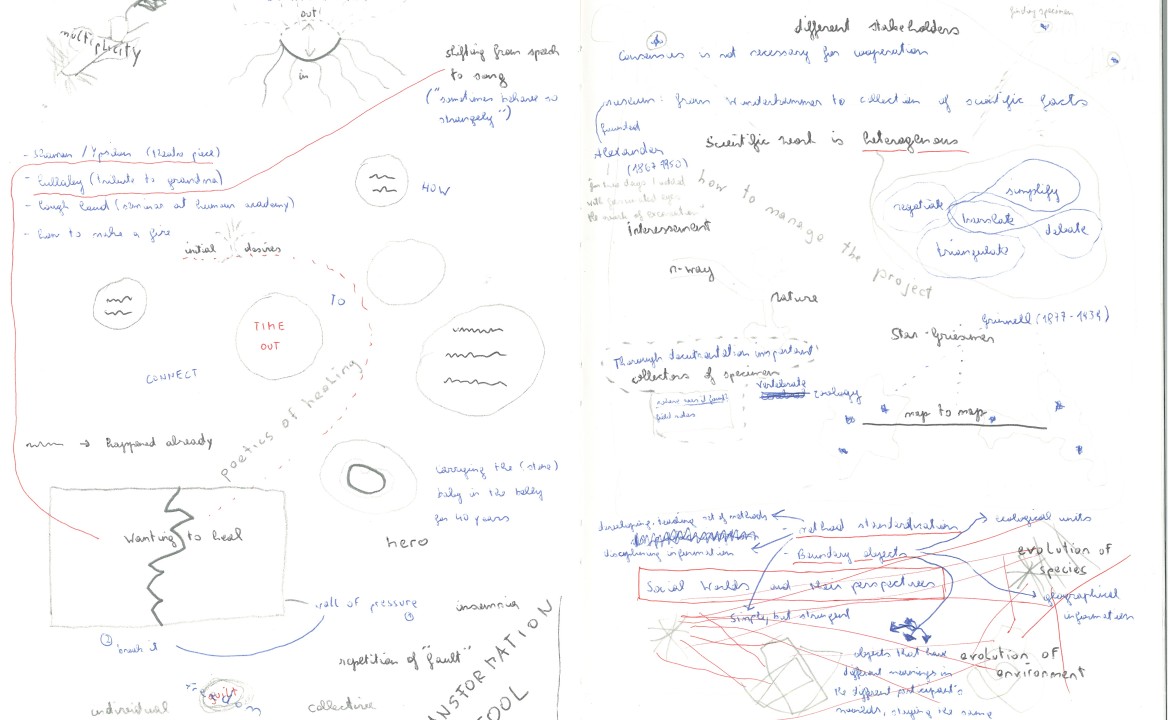 multiplicity
out!
in
shifting from speech
to song
("sometimes behaves so
strangely")
- Shuman / Ypsilon (theatre piece)
- Lullaby (tribute to grandma)
- Rough (seminar at human academy)
- How to make a fire
initial desires
HOW
TO
TIME
OUT
CONNECT
poetics of healing
→ happened already
carrying the (stone)
baby in the belly
for 40 years
Wanting to heal
hero
wall of pressure
insomnia
break it
repetition of "fault"
guilt
individual
collective
TRANSFORMATION
TOOL
finding specimen
different stakeholders
Consensus is not necessary for cooperation
museum: from Wunderkammer to collection of scientific facts
founded
Alexander
(1867-1950)
Scientific work is heterogenous
how to manage the project
simplify
negotiate
translate
debate
triangulate
interessement
n-way
nature
Grinnell (1877-1939)
Star-Griesmer
Thorough documentation important!
collectors of specimen
vertebrate
zoology
field notes
map to map
developing, teaching set of methods
- method standardisation
ecological units
disciplining information
- Boundary objects
evolution of
species
Social Worlds and their perspectives
geographical
information
Simple, but stringent
objects that have
different meanings in
the different participant's
worlds, staying the same
evolution of
environment